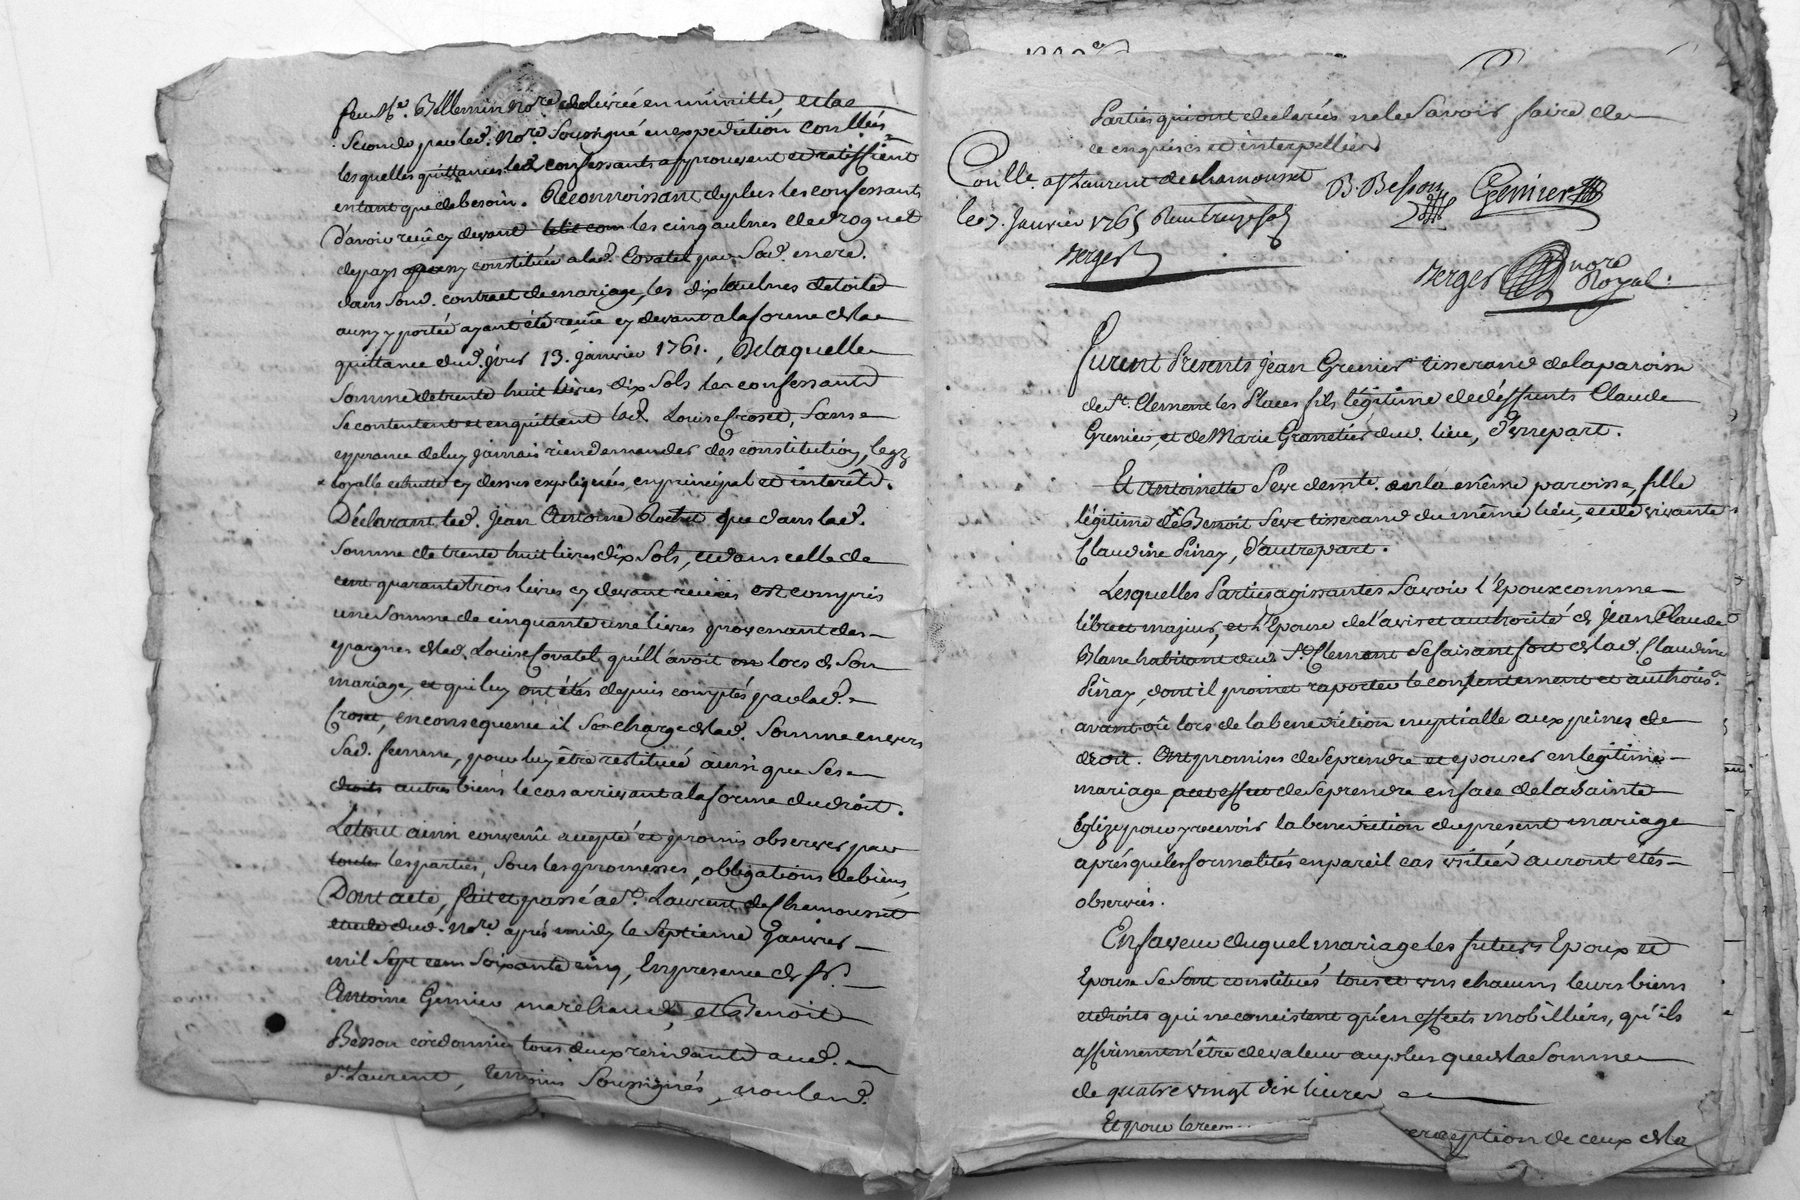 feu Me. Billemin nore. delivrée en minutte, et la
Seconde par led. Nore. Soussigné en expedition controllés,
lesquelles quittances led. confessants approuvent et ratiffient
entant que de besoin. Reconnoissant de plus les confessants
d'avoir reçü cy devant les cinq aulnes de droguet
de pays aussy constituée a lad. Covatel par Sad. mere.
dans Sond. contract de mariage, les dix aulnes de toile
aussy portée ayant été reçüe cy devant a la forme de la
quittance dud. jour 13. janvier 1761., De laquelle
Somme de trente huit livres dix Sols les confessants
Se contentent et en quittent lad. Louise Crozet, Sans
esperance de luy jamais rien demander des constitution, legz
loyalle et hutte cy dessus expliquées, en principal et interêts.
Déclarant led. Jean Antoine que dans lad.
Somme de trente huit livres dix Sols, et dans celle de
cent quarante trois livres cy devant reçües est compris
une Somme de cinquante une livres provenant des
epargnes de lad. Louise Covatel qu'ell'avoit lors de Son
mariage, et qui luy ont étés depuis comptés par lad.
Crozet, en consequence il Se charge de lad. Somme envers
Sad. femme, pour luy être restituée ainsi que Ses
droits autres biens le cas arrivant a la forme du droit.
Le tout ainsi convenü accepté et promis observer par
toutes les parties, Sous les promesses, obligations de biens,
Dont acte, fait et passé a St. Laurent de Chamousset
etude dud. Nore. aprés midy le Septieme Janvier
mil Sept cent Soixante cinq, En presence de Sr.
Antoine Grenier marchand, et Benoit
Besson cordonnier tous deux residants aud.
St. Laurent, temoins Soussignés, non led.
Parties qui ont declarés ne le Savoir faire de
ce enquises et interpellées
Conlle. a St Laurent de chamousset
le 7. Janvier 1765 Reçu treize Sols
B. Besson
Grenier
Berger
Berger nore Royal.
Furent Presents Jean Grenier tisserand de la paroisse
de St. Clement les Places fils légitime de déffunts Claude
Grenier, et de Marie Granetier dud. lieu, d'une part.
Et Antoinette Seve demte. en la même paroisse, fille
légitime de Benoit Seve tisserand du même lieu, et de vivante
Claudine Pinay, d'autre part.
Lesquelles Parties agissantes Savoir l'Epoux comme
libre et majeur, et l'Epouse de l'avis et authorité de Jean Claude
Blanc habitant dud. St. Clement Se faisant fort de lad. Claudine
Pinay, dont il promet raporter le consentement et authoris.
avant où lors de la benediction nuptialle aux peines de
droit. Ont promises de Se prendre et epouser en legitime
mariage de Se prendre en face de la Sainte
Eglize pour y recevoir la benediction du present mariage
aprés que les formalités en pareil cas usitées auront étés
observées.
En faveur du quel mariage les futurs Epoux et
Epouse Se Sont constitués tous et uns chacuns leurs biens
et droits qui ne consistent qu'en effects mobilliers, qu'ils
affirment n'être de valeur au plus que de la Somme
de quatre vingt dix livres
Et pour exception de ceux de la